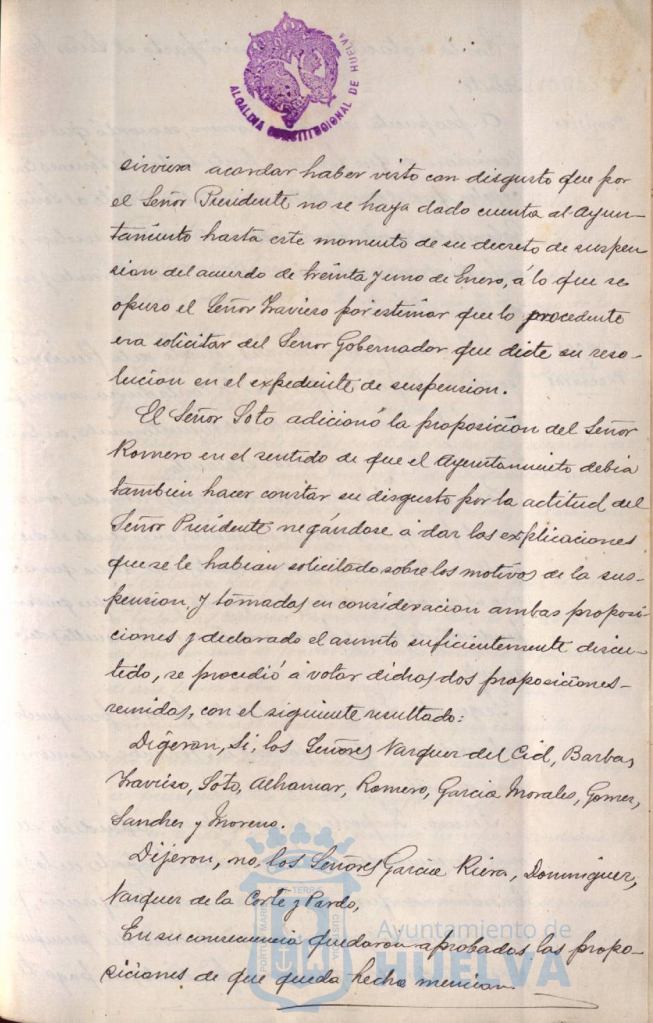 ALCALDIA CONSTITUCIONAL DE HUELVA
sirviera acordar haber visto con disgusto que por
el Señor Presidente no se haya dado cuenta al Ayun-
tamiento hasta este momento de su decreto de suspen
sion del acuerdo de treinta y uno de Enero, á lo que se
opuso el Señor Travieso por estimar que lo procedente
era solicitar del Señor Gobernador que dicte su reso-
lucion en el expediente de suspension.
El Señor Soto adicionó la proposicion del Señor
Romero en el sentido de que el Ayuntamiento debia
tambien hacer constar su disgusto por la actitud del
Señor Presidente negándose á dar las explicaciones
que se le habian solicitado sobre los motivos de la sus-
pension, y tomadas en consideracion ambas proposi
ciones y declarado el asunto suficientemente discu-
tido, se procedió á votar dichas dos proposiciones
reunidas, con el siguiente resultado:
Digeron, Si, los Señores Vazquez del Cid, Barba,
Travieso, Soto, Alhamar, Romero, Garcia Morales, Gomez,
Sanchez y Moreno.
Dijeron, no, los Señores Garcia Riera, Dominguez,
Vazquez de la Corte y Pardo,
En su consecuencia quedaron aprobadas las propo-
siciones de que queda hecha mencion.
Ayuntamiento de
HUELVA